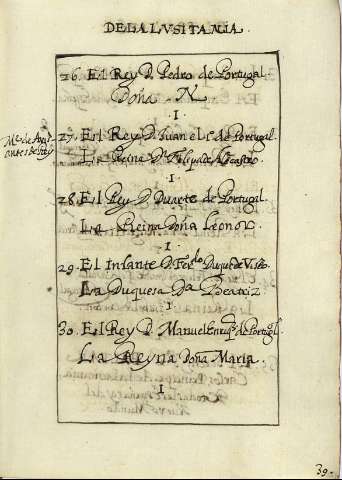 DE LA LVSITANIA.
26. El Rey D. Pedro de Portugal
Doña N
I
27. El Rey D. Juan el I.º de Portugal.
La Reina D.ª Felipa de
I
28. El Rey D. Duarte de Portugal.
La Reina Doña Leonor
I
29. El Infante D. Fer.do Duque de Viseo.
La Duquesa D.ª Beatriz
I
30. El Rey D. Manuel de Portugl.
La Reyna Doña Maria.
I
39.